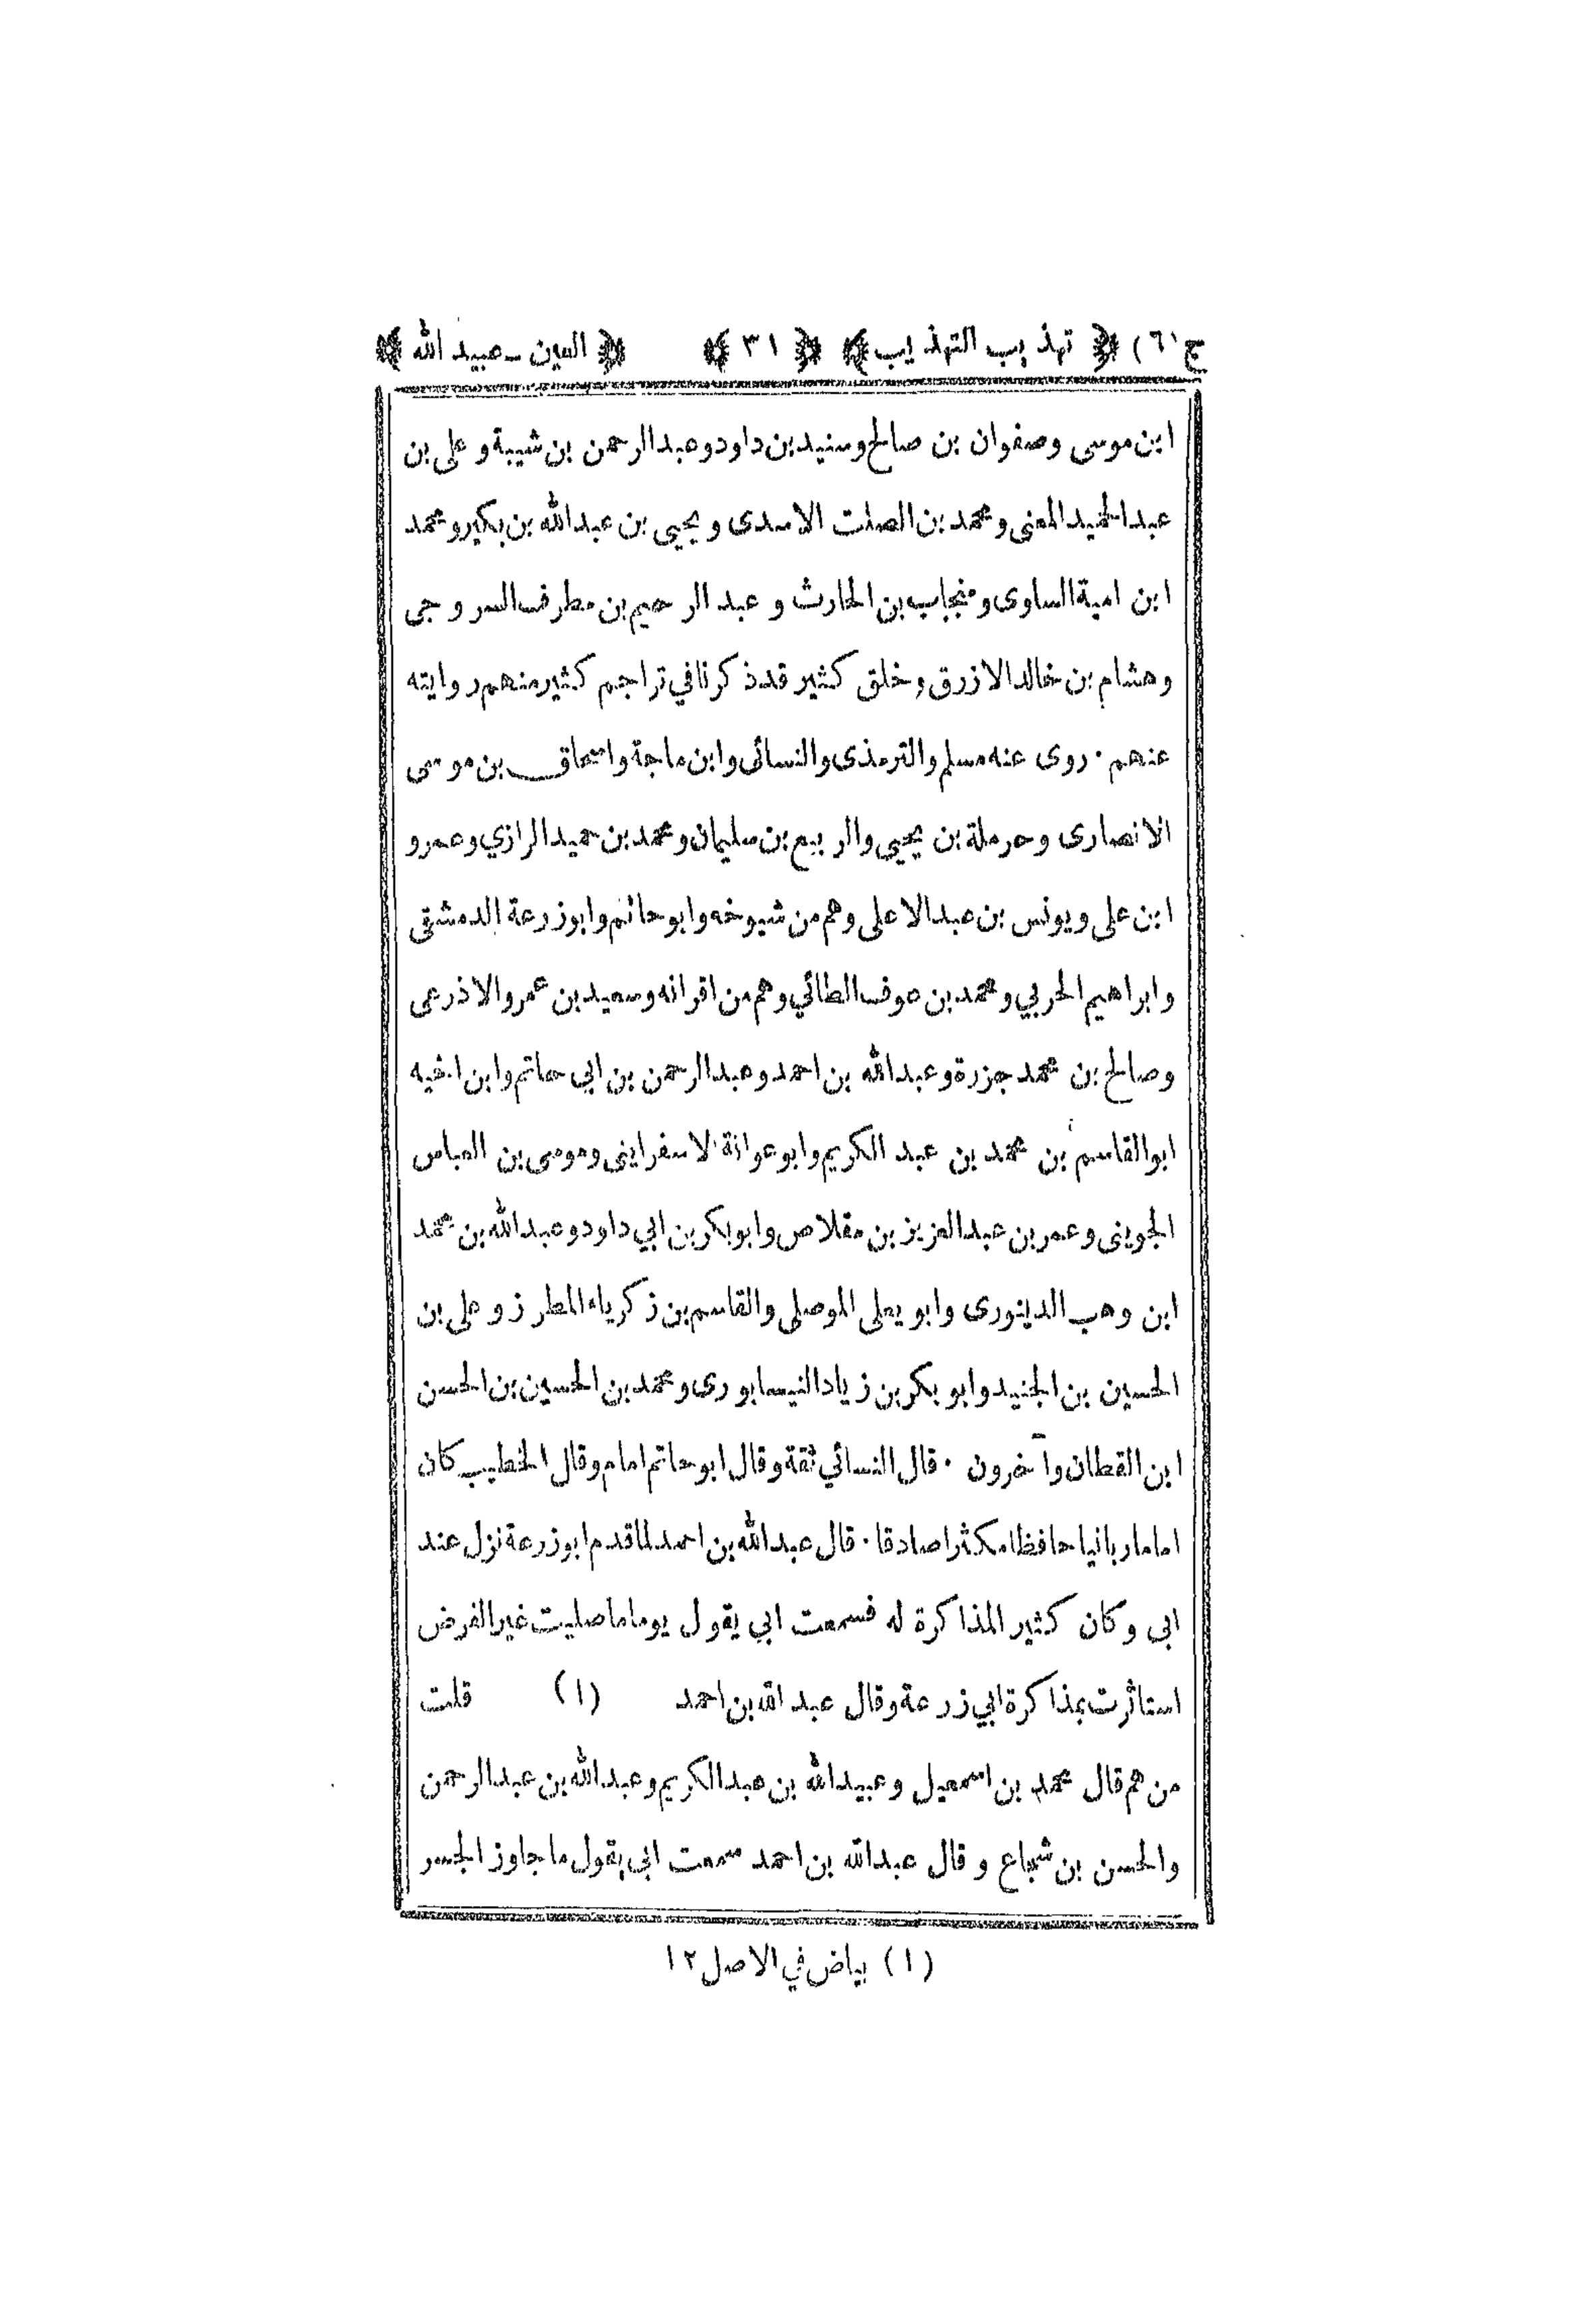 ج (٦) ﴿ تهذيب التهذيب ﴾ ﴿ ٣١ ﴾ ﴿ العين - عبيد الله ﴾
ابن موسى وصفوان بن صالح وسنيد بن داود وعبد الرحمن بن شيبة وعلى بن
عبد الحميد المعنى ومحمد بن الصلت الاسدى ويحيى بن عبد الله بن بكير ومحمد
ابن امية الساوى ومنجاب بن الحارث وعبد الرحيم بن مطرف السروجى
وهشام بن خالد الازرق وخلق كثير قد ذكرنا في تراجم كثير منهم روايته
عنهم · روى عنه مسلم والترمذى والنسائى وابن ماجة واسحاق بن موسى
الانصارى وحرملة بن يحيى والربيع بن سليمان ومحمد بن حميد الرازي وعمرو
ابن على ويونس بن عبد الاعلى وهم من شيوخه وابو حاتم وابو زرعة الدمشقى
وابراهيم الحربي ومحمد بن عوف الطائي وهم من اقرانه وسعيد بن عمرو الاذرعى
وصالح بن محمد جزرة وعبد الله بن احمد وعبد الرحمن بن ابي حاتم وابن اخيه
ابو القاسم بن محمد بن عبد الكريم وابو عوانة الاسفراينى وموسى بن العباس
الجوينى وعمر بن عبد العزيز بن مقلاص وابو بكر بن ابي داود وعبد الله بن محمد
ابن وهب الدينورى وابو يعلى الموصلى والقاسم بن زكرياء المطرز وعلى بن
الحسين بن الجنيد وابو بكر بن زياد النيسابورى ومحمد بن الحسين بن الحسن
ابن القطان وآخرون · قال النسائي ثقة وقال ابو حاتم امام وقال الخطيب كان
اماما ربانيا حافظا مكثرا صادقا · قال عبد الله بن احمد لما قدم ابو زرعة نزل عند
ابى وكان كثير المذاكرة له فسمعت ابي يقول يوما ما صليت غير الفرض
استاثرت بمذاكرة ابي زرعة وقال عبد الله بن احمد (١) قلت
من هم قال محمد بن اسمعيل وعبيد الله بن عبد الكريم وعبد الله بن عبد الرحمن
والحسن بن شجاع وقال عبد الله بن احمد سمعت ابي يقول ما جاوز الجسر
(١) بياض في الاصل ١٢